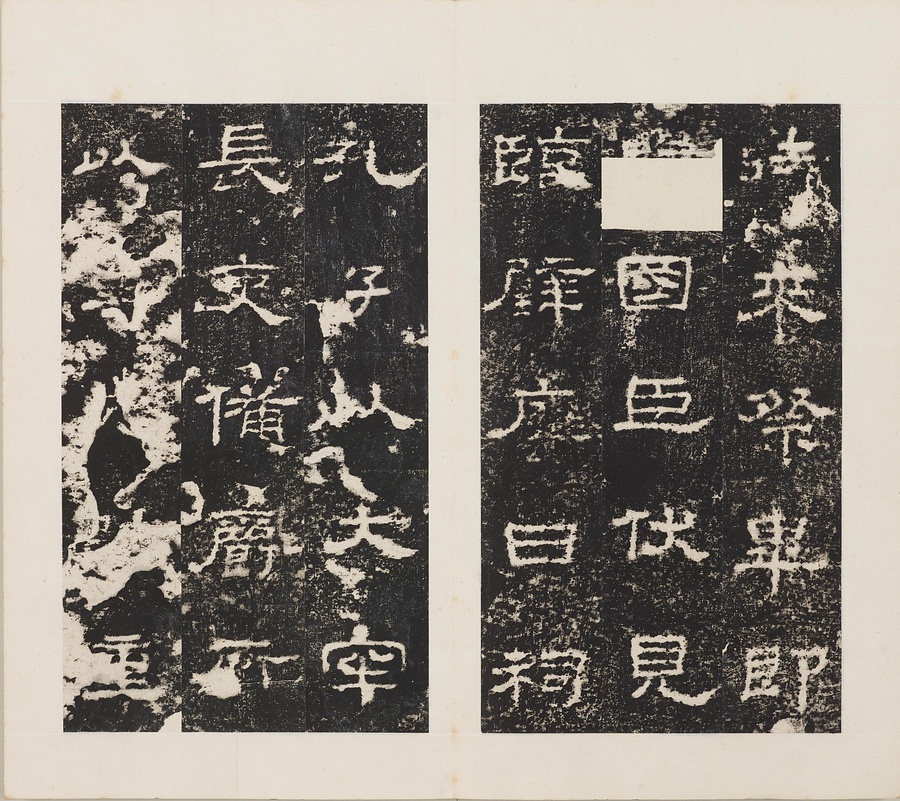 時來祭畢即
國臣伏見
臨辟雍日祠
孔子以大牢
長吏備爵所
以重